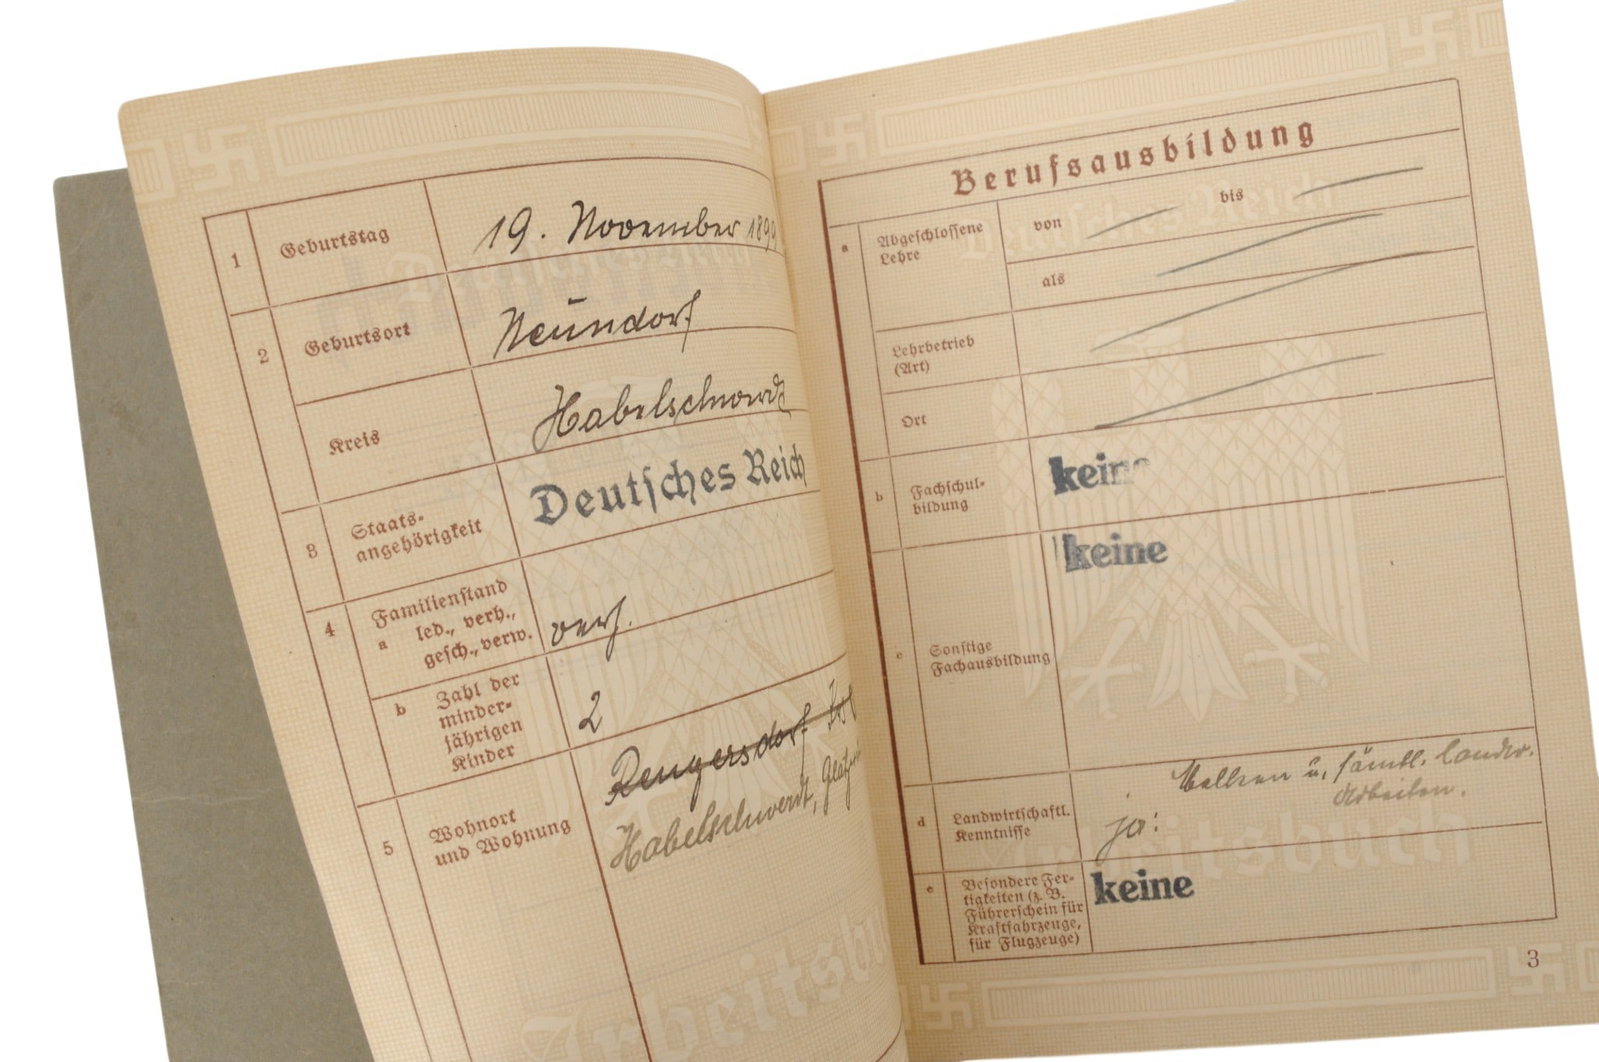 1 Geburtstag 19. November 1899
2 Geburtsort Neundorf
Kreis Habelschwerdt
3 Staats-
angehörigkeit Deutsches Reich
4 a Familienstand
led., verh.,
gesch., verw. verh.
b Zahl der
minder-
jährigen
Kinder 2
5 Wohnort
und Wohnung
Rengersdorf
Habelschwerdt,
Arbeitsbu
Berufsausbildung
Deutsches Reich
a Abgeschlossene
Lehre
von bis
als
Lehrbetrieb
(Art)
Ort
b Fachschul-
bildung keine
c Sonstige
Fachausbildung keine
d Landwirtschaftl.
Kenntnisse ja:
Melken u. sämtl. landw.
Arbeiten.
Arbeitsbuch
e Besondere Fer-
tigkeiten (z. B.
Führerschein für
Kraftfahrzeuge,
für Flugzeuge) keine
3